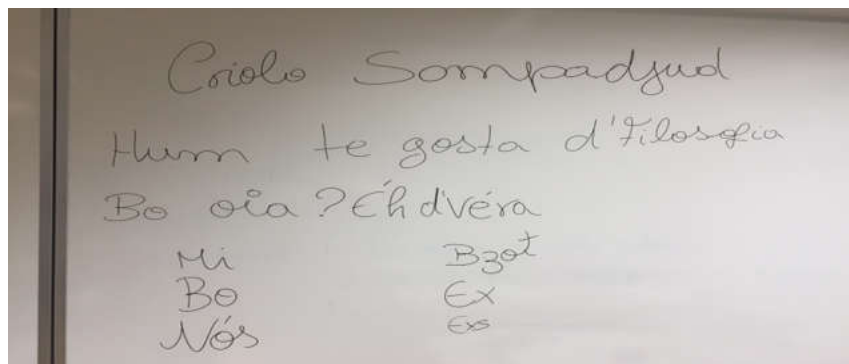 Criolo Sompadjud
Hum te gosta d'Filosofia
Bo oia? Éh d'véra
Mi Bzot
Bo Ex
Nós Exs